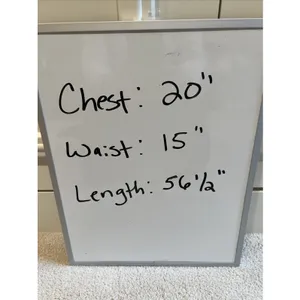 Chest: 20"
Waist: 15"
Length: 56 1/2"